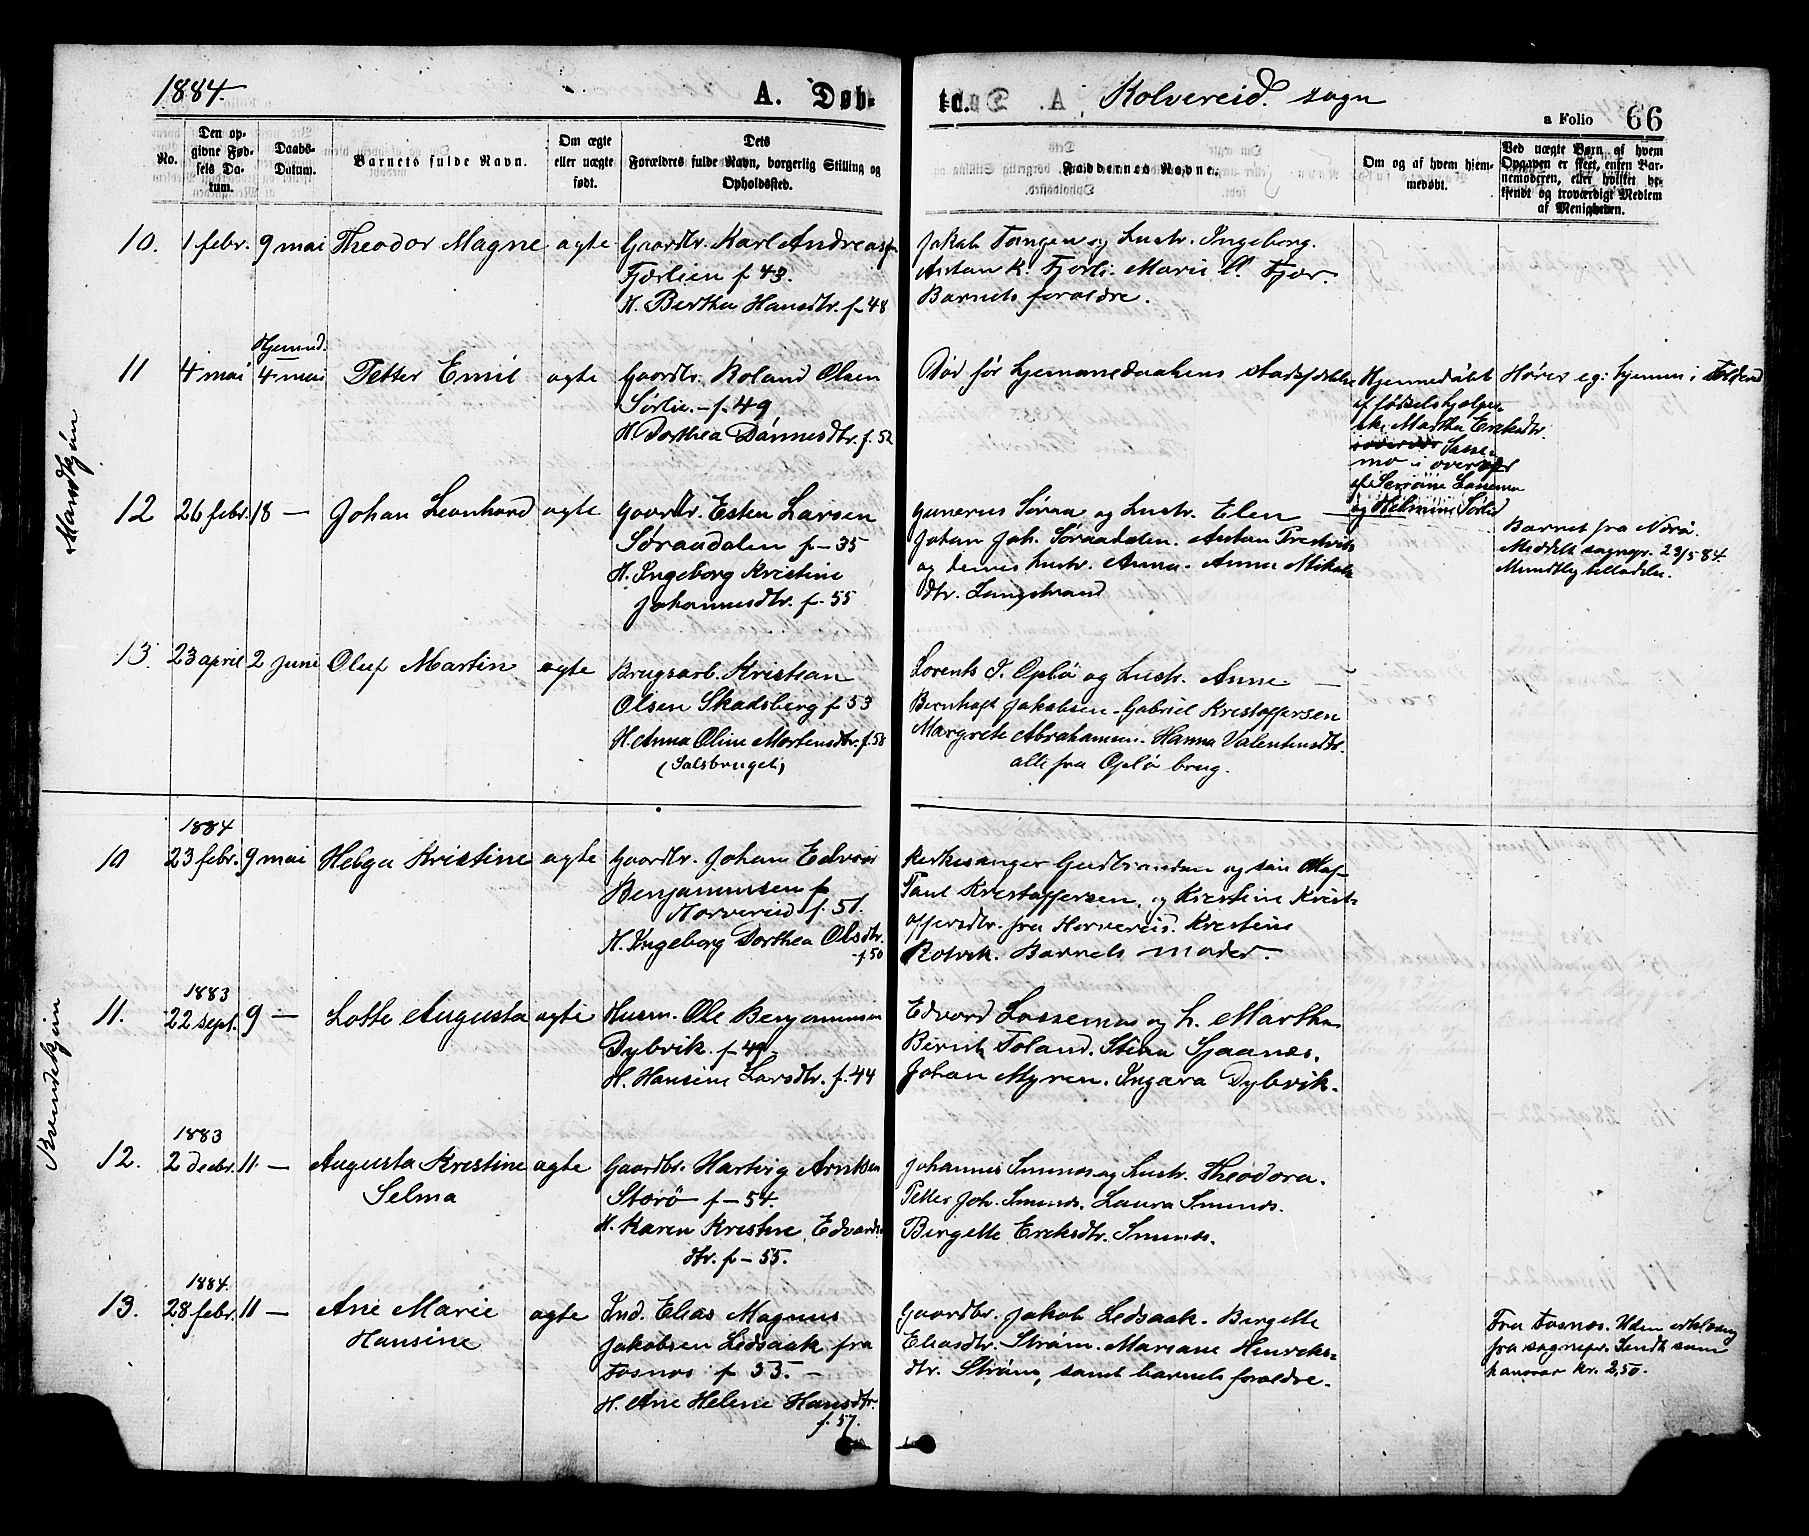 1884.
A. Døb-
te.
Kolvereid. sogn
a Folio 66
No.
Den op-
givne Fød-
sels Da-
tum.
Daabs-
Datum.
Barnets fulde Navn.
Om ægte
eller uægte
født.
Dets
Forældres fulde Navn, borgerlig Stilling og
Opholdssted.
Faddernes Navne.
Om og af hvem hjem-
medøbt.
Ved uægte Børn, af hvem
Opgaven er skeet, enten Bar-
nemoderen, eller hvilket be-
kjendt og troværdigt Medlem
af Menigheden.
Mandkjøn
10. 1 febr. 9 mai Theodor Magne ægte Gaardbr. Karl Andreassen
Fjærlien f. 43.
H. Bertha Hansdtr. f. 48
Jakob Tangen og hustr. Ingeborg.
Antan K. Fjerli. Marie Fjær.
Barnets forældre.
11 4 mai Hjemmed.
4 mai Petter Emil ægte Gaardbr. Roland Olsen
Sørlie. f. 49
H. Dorthea Dønnesdtr. f. 52
Død før hjemmedaabens stadfæstelse
Hjemmedøbt
af fødselshjælper-
ske Martha Ericksdtr.
Lasse-
mo i overvær
af Serine Lassemo
og Helmine Sørlie
Hører eg: hjemme i Foldereid
12 26 febr. 18 — Johan Leonhard ægte Gaardbr. Esten Larsen
Søraadalen f. 35
H. Ingeborg Kristine
Johannesdtr. f. 55
Gunerius Søraa og hustr. Elen
Johan Joh. Søraadalen. Antan Prestvik
og dennes hustr. Anna. Anna Mikals
dtr. Langstrand
Barnet fra Nærø.
Meddelt sognepr. 23/5 84.
Mundtlig tilladelse.
13. 23 april 2 juni Oluf Martin ægte Brugsarb. Kristian
Olsen Skadsberg f. 53
H. Anna Oline Mortensdtr. f. 58
(Salsbruget)
Lorents J. Oplø og hustr. Anne
Bernhoft Jakobsen. Gabriel Kristoffersen
Margrete Abrahamsen. Hanna Valentinsdtr.
alle fra Opløbrug.
Kvindekjøn
10 1884
23 febr. 9 mai Helga Kristine ægte Gaardbr. Johan Edvard
Benjaminsen
Horvereid f. 51.
H. Ingeborg Dorthea Olsdtr.
f. 50
Kirkesanger Gudbrandsen og søn Olaf-
Paul Kristoffersen, og Kristine Krist-
offersdtr. fra Horvereid. Kristine
Rotvik. Barnets moder.
11. 1883
22 sept. 9 — Lotte Augusta ægte Husm. Ole Benjaminsen
Dybvik. f. 49
H. Hansine Larsdtr. f. 44
Edvard Lassemo og h. Martha
Bernt Foland. Stina Sjaanes.
Johan Myren. Ingara Dybvik.
12. 1883
2 decbr. 11. — Augusta Kristine
Selma ægte Gaardbr. Hartvig Arntsen
Storø f. 54.
H. Karen Kristine Edvards
dtr. f. 55.
Johannes Smines og hustr. Theodora.
Petter Joh. Smines. Laura Smines.
Bergette Ericksdtr. Smines.
13. 1884.
28 febr. 11 — Ane Marie
Hansine ægte Ind. Elias Magnus
Jakobsen Ledsaak fra
Fosnes f. 55.
H. Ane Helene Hansdtr.
f. 57.
Gaardbr. Jakob Ledsaak. Bergette
Eliasdtr. Strøm. Mariane Henriks-
dtr. Strøm, samt barnets forældre.
Fra Fosnes. Uden erklæring
fra sognepr. Sendt som
kr. 2,50.